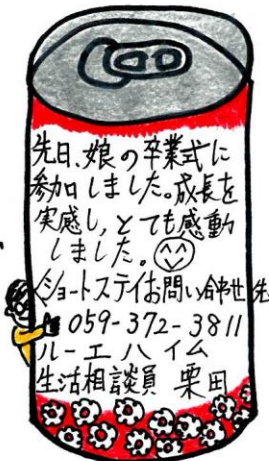 先日、娘の卒業式に
参加しました。成長を
実感し、とても感動
しました。
ショートステイお問い合わせ先
059-372-3811
ルーエハイム
生活相談員 栗田